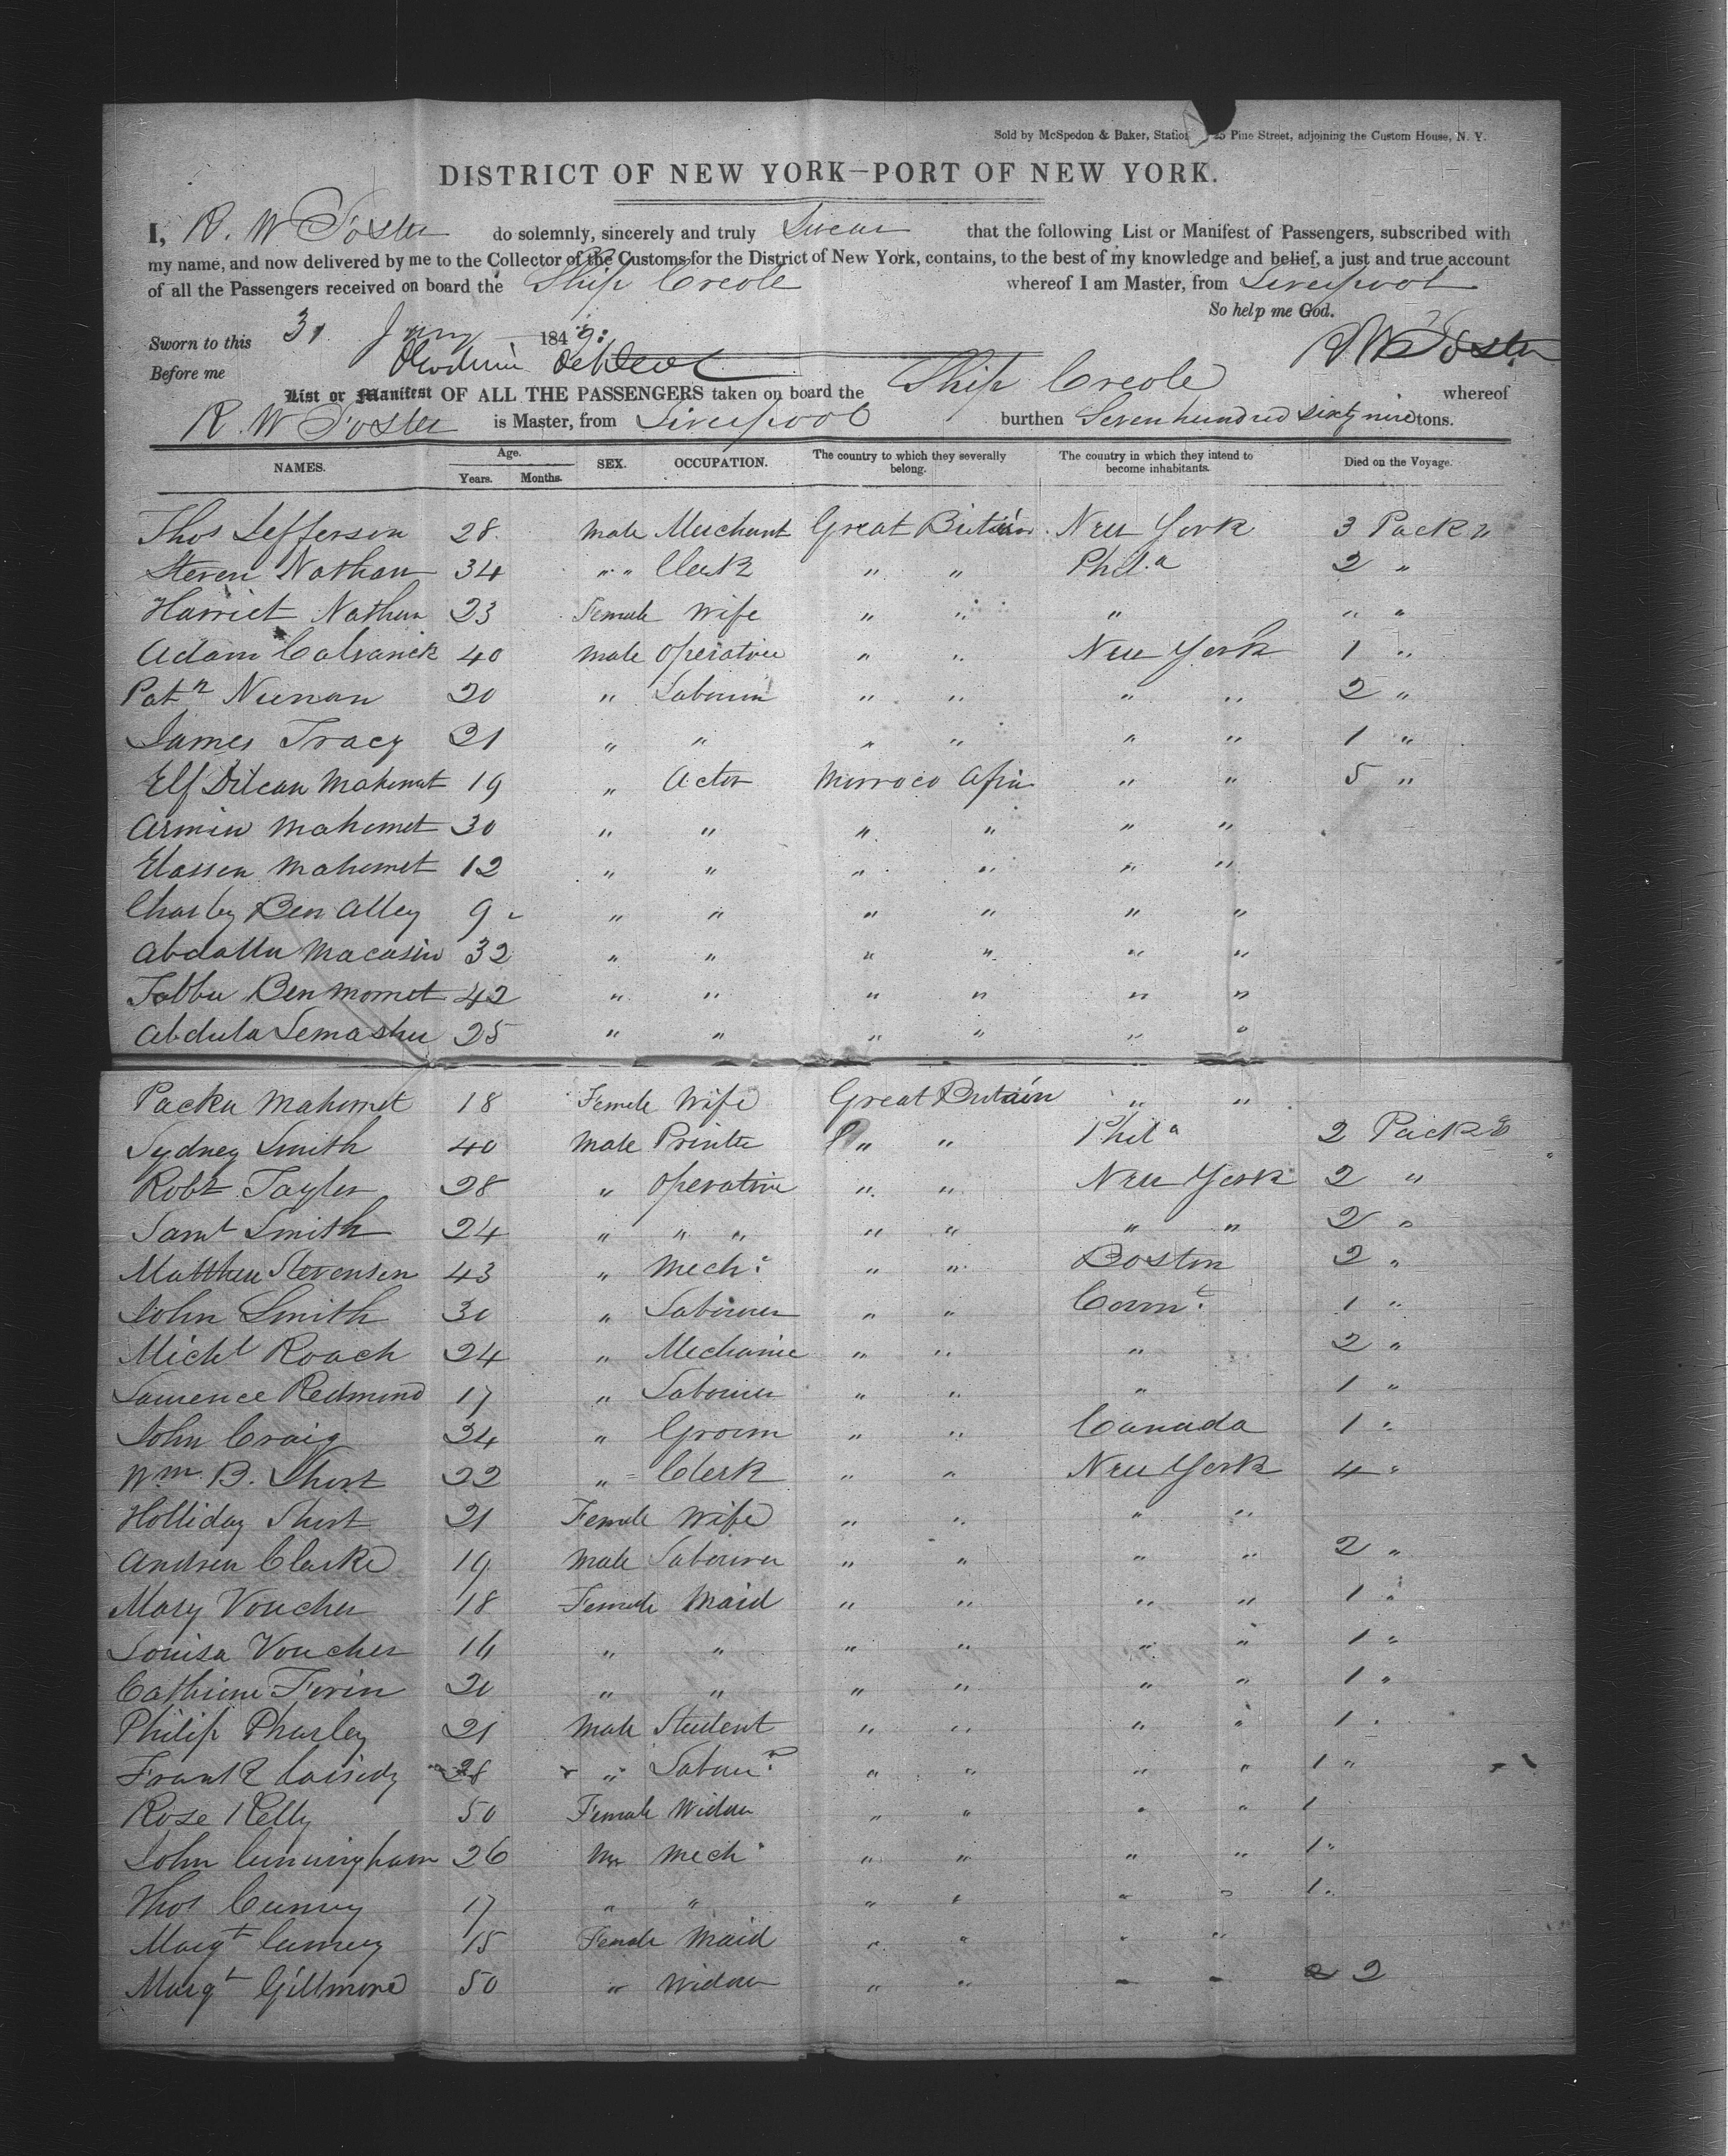 Sold by McSpedon & Baker, Station 25 Pine Street, adjoining the Custom House, N. Y.
DISTRICT OF NEW YORK—PORT OF NEW YORK.
I, R. W Foster do solemnly, sincerely and truly Swear that the following List or Manifest of Passengers, subscribed with
my name, and now delivered by me to the Collector of the Customs for the District of New York, contains, to the best of my knowledge and belief, a just and true account
of all the Passengers received on board the Ship Creole whereof I am Master, from Liverpool
So help me God.
Sworn to this 31 Jany 1843:
Before me R W Foster
List or Manifest OF ALL THE PASSENGERS taken on board the Ship Creole whereof
R. W Foster is Master, from Liverpool burthen Seven hundred sixty nine tons.
NAMES. Age. Years. Months. SEX. OCCUPATION. The country to which they severally belong. The country in which they intend to become inhabitants. Died on the Voyage.
Thos Jefferson 28. Male Merchant Great Britain. New York 3 Pack "
Steven Nathan 34 " " Clerk " " Phil.a 2 "
Harriet Nathan 23 Female Wife " " " " "
Adam Calvanick 40 Male Operative " " New York 1 "
Patk Neenan 20 " Labourer " " " " 2 "
James Tracy 21 " " " " " " 1 "
Elf Dilcan Mahomet 19 " Actor Morroco Africa " " 5 "
Armin Mahomet 30 " " " " " "
Elassen Mahomet 12 " " " " " "
Charley Ben Alley 9 " " " " " "
Abdalla Macasin 32 " " " " " "
Jabbu Ben Momet 42 " " " " " "
Abdula Lemashu 25 " " " " " "
Packa Mahomet 18 Female Wife Great Britain " "
Sydney Smith 40 Male Printer " " Phila 2 Packgs
Robt Tayler 28 " Operative " " New York 2 "
Saml Smith 24 " " " " " " " 2 "
Matthew Stevenson 43 " Mech: " " Boston 2 "
John Smith 30 " Labourer " " Connt. 1 "
Michl Roach 24 " Mechanic " " " 2 "
Laurence Redmond 17 " Labourer " " " 1 "
John Craig 24 " Groom " " Canada 1 "
Wm. B. Short 22 " Clerk " " New York 4 "
Holliday Short 21 Female Wife " " " "
Andrew Clarke 19 Male Labourer " " " " 2 "
Mary Voucher 18 Female Maid " " " " 1 "
Louisa Voucher 16 " " " " " " 1 "
Catherine Ferin 20 " " " " " " 1 "
Philip Pharley 21 Male Student " " " " 1 "
Frank Cassidy 28 " Labourr. " " " " 1 "
Rose Kelly 50 Female Widow " " " " 1
John Cunningham 26 Mech " " " " 1 "
Thos Cumey 17 " " " " " " 1 "
Margt Cumey 15 Female Maid " " " "
Margt Gillmore 50 " Widow " " " " 2